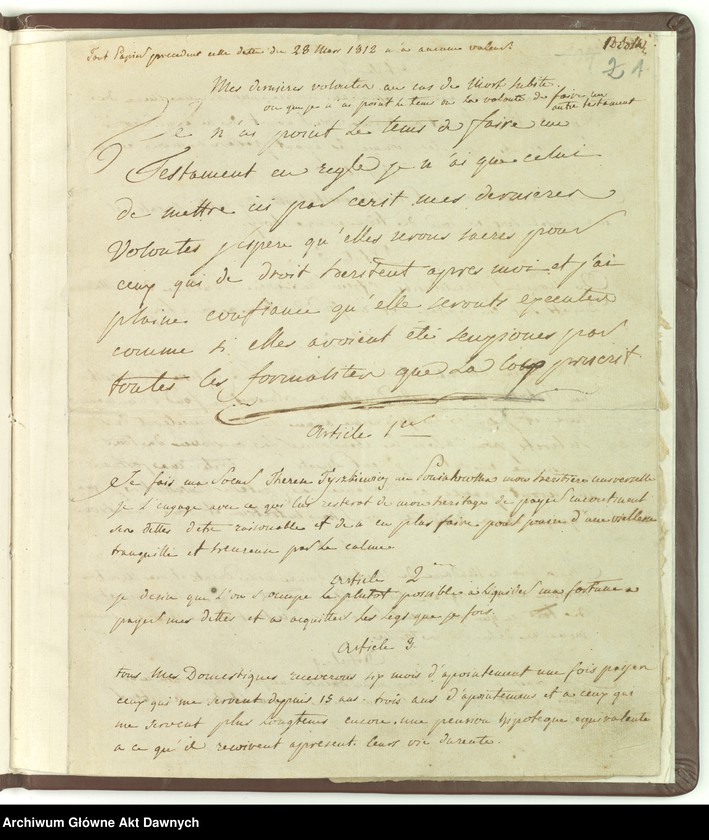 Tout Papier precedent cette date du 28 Mars 1812 n a aucune valeur
2 1
Mes dernieres volontes au cas de Mort subite
ou que je n ai point le tems ni la volonté de faire un
autre testament
Je n'ai point le tems de faire un
Testament en regle je n'ai que celui
de mettre ici par ecrit mes dernieres
Volontes j'espere qu'elles serons sacres pour
ceux qui de droit heritent apres moi et j'ai
pleine confiance qu'elle seronts executes
comme si elles avoient été par
toutes les formalites que La loy prescrit
Article 1er
Je fais ma Soeur Therese Tyszkiewicz nee Poniatowska mon heritiere universelle
Je L'engage avec ce qui lui resterat de mon heritage de payer
ses dettes d'etre raisonable et de n en plus faire pour jouir d'une viellesse
tranquille et heureuse par Le calme
article 2
je desire que L'on s'occupe le plutot possible a liquider ma fortune a
payer mes Dettes et a acquitter les legs que je fais.
Article 3.
tous Mes Domestiques receverons six mois d'apointement une fois payer
ceux qui me servent depuis 15 ans. trois ans d'apointemens et a ceux qui
me servent plus longtems encore, une pension hypoteque equivalente
a ce qu'il recoivent apresent. leurs vie durente.
Archiwum Główne Akt Dawnych